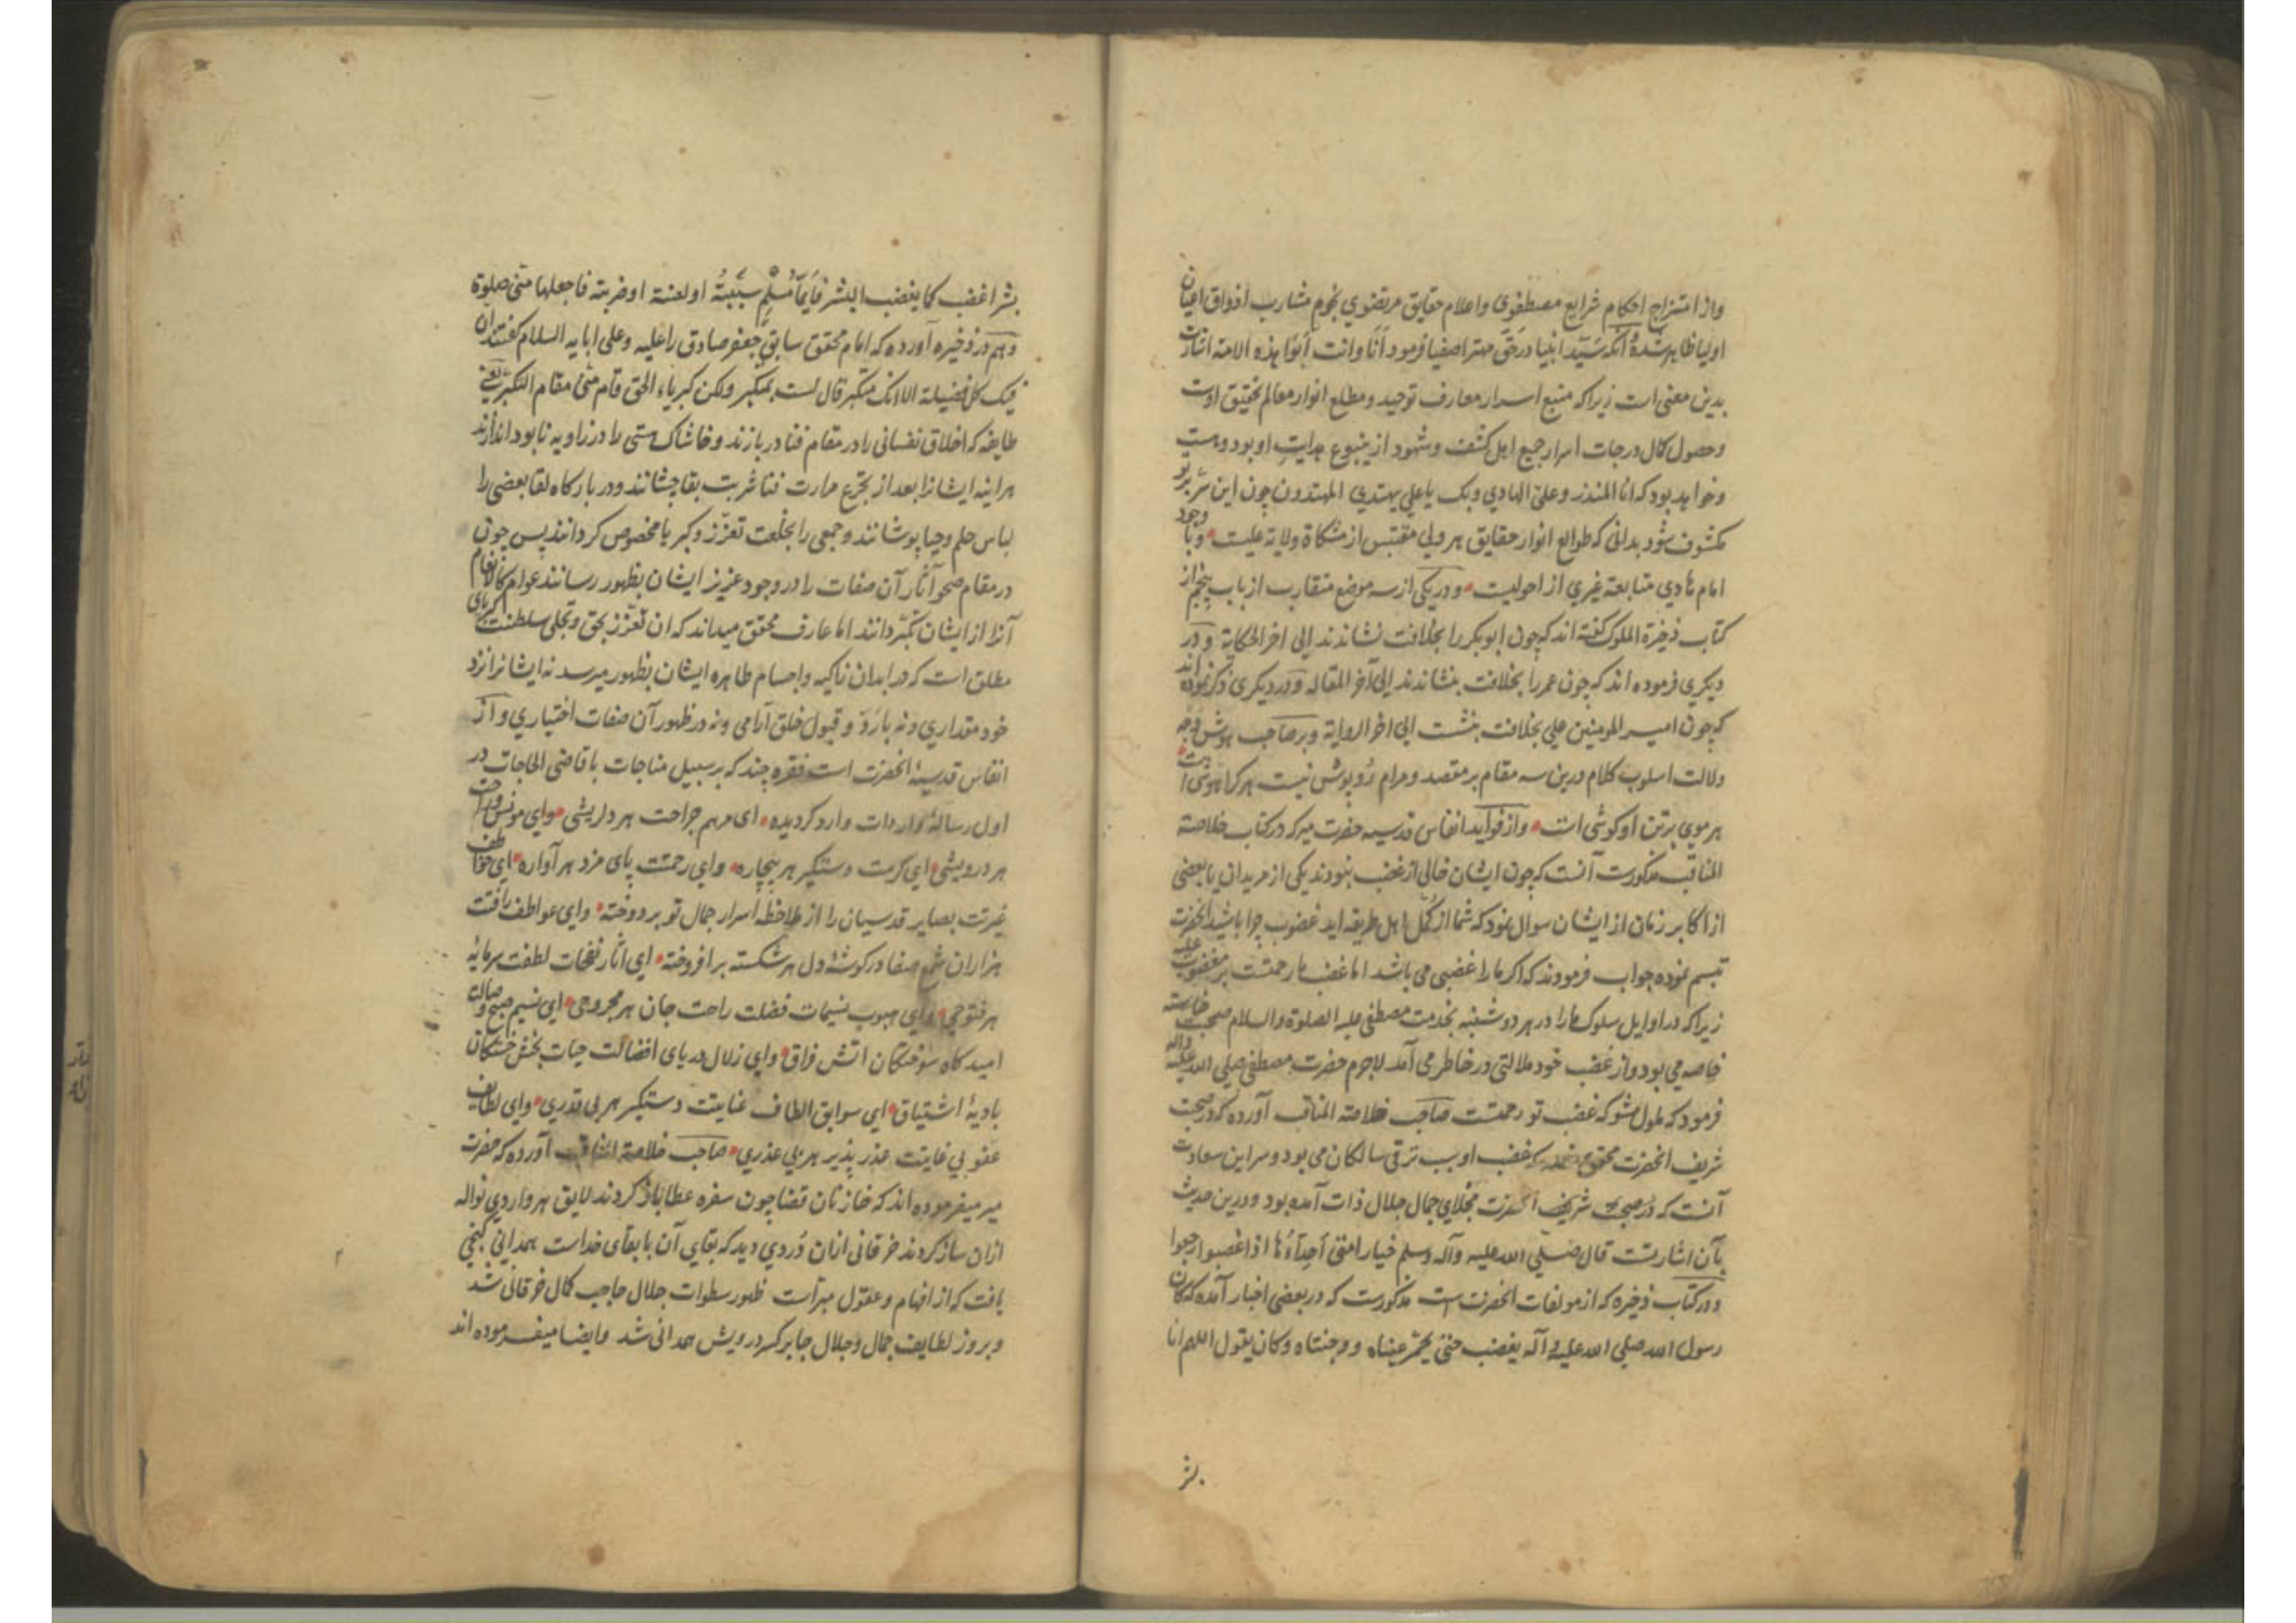 واز امتزاج احکام شرایع مصطفوی واعلام حقایق مرتضوی نجوم مشارب اذواق اعیان
اولیا ظاهر شده وآنکه سَیّد انبیا درحَقّ مهتر اصفیا فرمود اَنَا وانت اَبَوَا هذه الامة اشارت
بدین معنی است زیراکه منبع اسرار معارف توحید ومطلع انوار معالم تحقیق اوست
وحصول کمال درجات اسرار جمیع اهل کشف وشهود از ینبوع هدایت او بود وهست
وخواهد بود که انا المنذر وعلیّ الهادی وبک یا علی یهتدی المهتدون چون این سّر بر تو
مکشوف شود بدانی که طوالع انوار حقایق هر ولی مقتبس از مشکاة ولایة علیست وبا وجود
امام هادی متابعة غیری از احولیست ودر یکی از سه موضع متقارب از باب پنجم از
کتاب ذخیرة الملوک گفته اند که چون ابوبکر را بخلافت نشاندند الی اخر الحکایة ودر
دیکری فرموده اند که چون عمر را بخلافت بنشاندند الی آخر المقاله ودر دیکری ذکر نموده اند
که چون امیر المومنین علی بخلافت بنشست الی اخر الروایة وبر صاحب هوش وجه
دلالت اسلوب کلام درین سه مقام بر مقصد ومرام رُوپوش نیست هر کرا هوشی است
هر موی برتن او کوشی است واز فواید انفاس قدسیه حضرت میر که در کتاب خلاصة
المناقب مذکورست آنست که چون ایشان خالی از غضب نبودند یکی از مریدان یا بعضی
از اکابر زمان از ایشان سوال نمود که شما از کُمّل اهل طریقه اید غضوب چرا باشید انحضرت
تبسم نموده جواب فرمودند که اکر مارا غضبی می باشد اما غضب ما رحمتست بر مغضوب علیه
زیراکه در اوایل سلوک مارا در هر دوشنبه بخدمت مصطفی علیه الصلوة والسلام صحبت خاسته
خاصه می بود واز غضب خود ملالتی در خاطر می آمد لاجرم حضرت مصطفی صلی الله علیه واله
فرمود که ملول مشو که غضب تو رحمتست صاحب خلاصة المناقب آورده که در صحبت
شریف انحضرت محقق که غضب او سبب ترقی سالکان می بود وسر این سعادت
آنست که در صحبت شریف انحضرت مجلای جمال جلال ذات آمده بود ودرین حدیث
بآن اشارتست قال صلی الله علیه وآله وسلم خیار امتی اَحِدّآؤُها اذا غضبوا رجعوا
ودر کتاب ذخیره که از مولفات انحضرت است مذکورست که در بعضی اخبار آمده که کان
رسول الله صلی الله علیه وآله یغضب حتی یحمّر عیناه ووجنتاه وکان یقول اللهم انا
بشر
بشر اغضب کما یغضب البشر فَاَیُّمَا مُسْلِمٍ سَبَبْتُهُ او لعنته او ضربته فاجعلها منّی صلوة
وهم در ذخیره آورده که امام محقق سابق جعفر صادق را علیه وعلی ابایه السلام گفتند ان
فیک کل فضیلة الا انک متکبر قال لست بمتکبر ولکن کبریاء الحق قام منّی مقام التکبر یعنی
طایفه که اخلاق نفسانی را در مقام فنا در بازند وخاشاک هستی را در زاویه نابود اندازند
هراینه ایشانرا بعد از تجرّع مرارت فنا شربت بقا چشانند ودر بارکاه لقا بعضی را
لباس حلم وحیا پوشانند وجمعی را بخلعت تعزّز وکبریا مخصوص کردانند پس چون
در مقام صحو آثار آن صفات را در وجود عزیز ایشان بظهور رسانند عوام کالانعام
آنرا از ایشان تکبّر دانند اما عارف محقق میداند که ان تعّزز بحق وتجلی سلطنت کبریای
مطلق است که در ابدان زاکیه واجسام طاهره ایشان بظهور میرسد نه ایشانرا نزد
خود مقداری ونه با رَدّ وقبول خلق آرامی ونه در ظهور آن صفات اختیاری واز
انفاس قدسیهٔ انحضرت است فقره چند که بر سبیل مناجات با قاضی الحاجات در
اول رسالهٔ واردات وارد کردیده ای مرهم جراحت هر دلریشی وای مونس راحت
هر درویشی ای کرمت دستکیر هر بیچاره وای رحمتت پای مزد هر آواره ای خواطف
غیرتت بصایر قدسیان را از ملاحظه اسرار جمال تو بر دوخته وای عواطف رافتت
هزاران شمع صفا در کوشهٔ دل هر شکسته بر افروخته ای اثار نفحات لطفت سرمایهٔ
هر فتوحی وای هبوب نسیمات فضلت راحت جان هر مجروحی ای نسیم صبح وصالت
امیدکاه سوختکان اتش فراق وای زلال دریای افضالت حیات بخش خستکان
بادیهٔ اشتیاق ای سوابق الطاف عنایتت دستکیر هر بی قدری وای لطایف
عفو بی غایتت عذر پذیر هر بی عذری صاحب خلاصة المناقب آورده که حضرت
میر میفرموده اند که خازنان قضا چون سفره عطا باز کردند لایق هر واردی نواله
ازان ساز کردند خرقانی ازان دُردی دید که بقای آن با بقای خداست همدانی کنجی
یافت که از افهام وعقول مبراست ظهور سطوات جلال حاجب کمال خرقانی شد
وبروز لطایف جمال وجلال جابر کسر درویش همدانی شد وایضا میفرموده اند